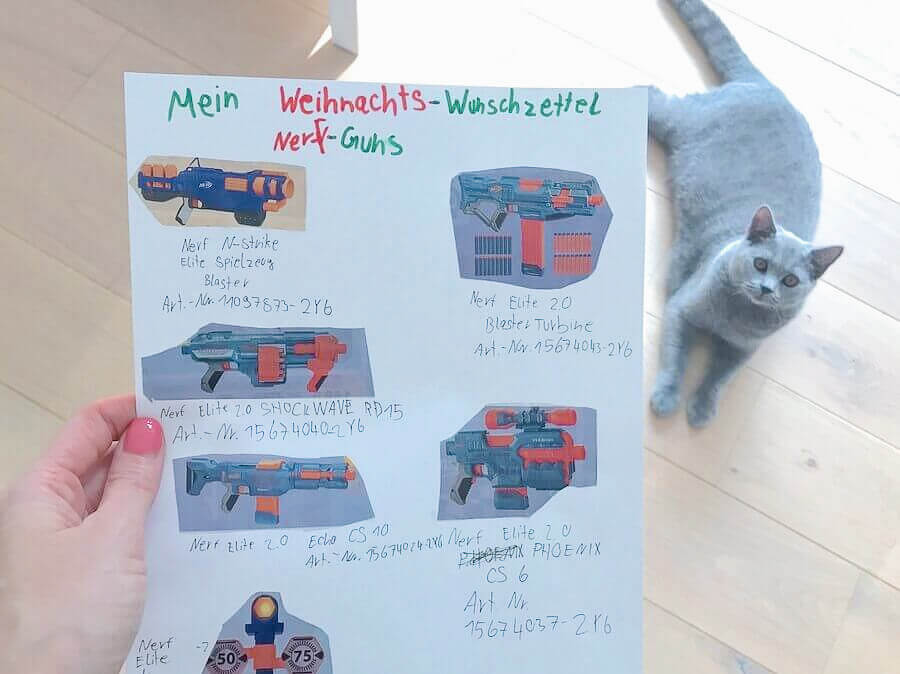 Mein Weihnachts-Wunschzettel
Nerf-Guns
Nerf N-Strike
Elite Spielzeug
Blaster
Art.-Nr. 11097873-2Y6
Nerf Elite 2.0
Blaster Turbine
Art.-Nr. 15674043-2Y6
Nerf Elite 2.0 SHOCKWAVE RD15
Art.-Nr. 15674040-2Y6
Nerf Elite 2.0 Echo CS 10
Art.-Nr. 15674074-2Y6
Nerf Elite 2.0
PHOENIX
CS 6
Art Nr.
15674037-2Y6
Nerf
Elite
50
75